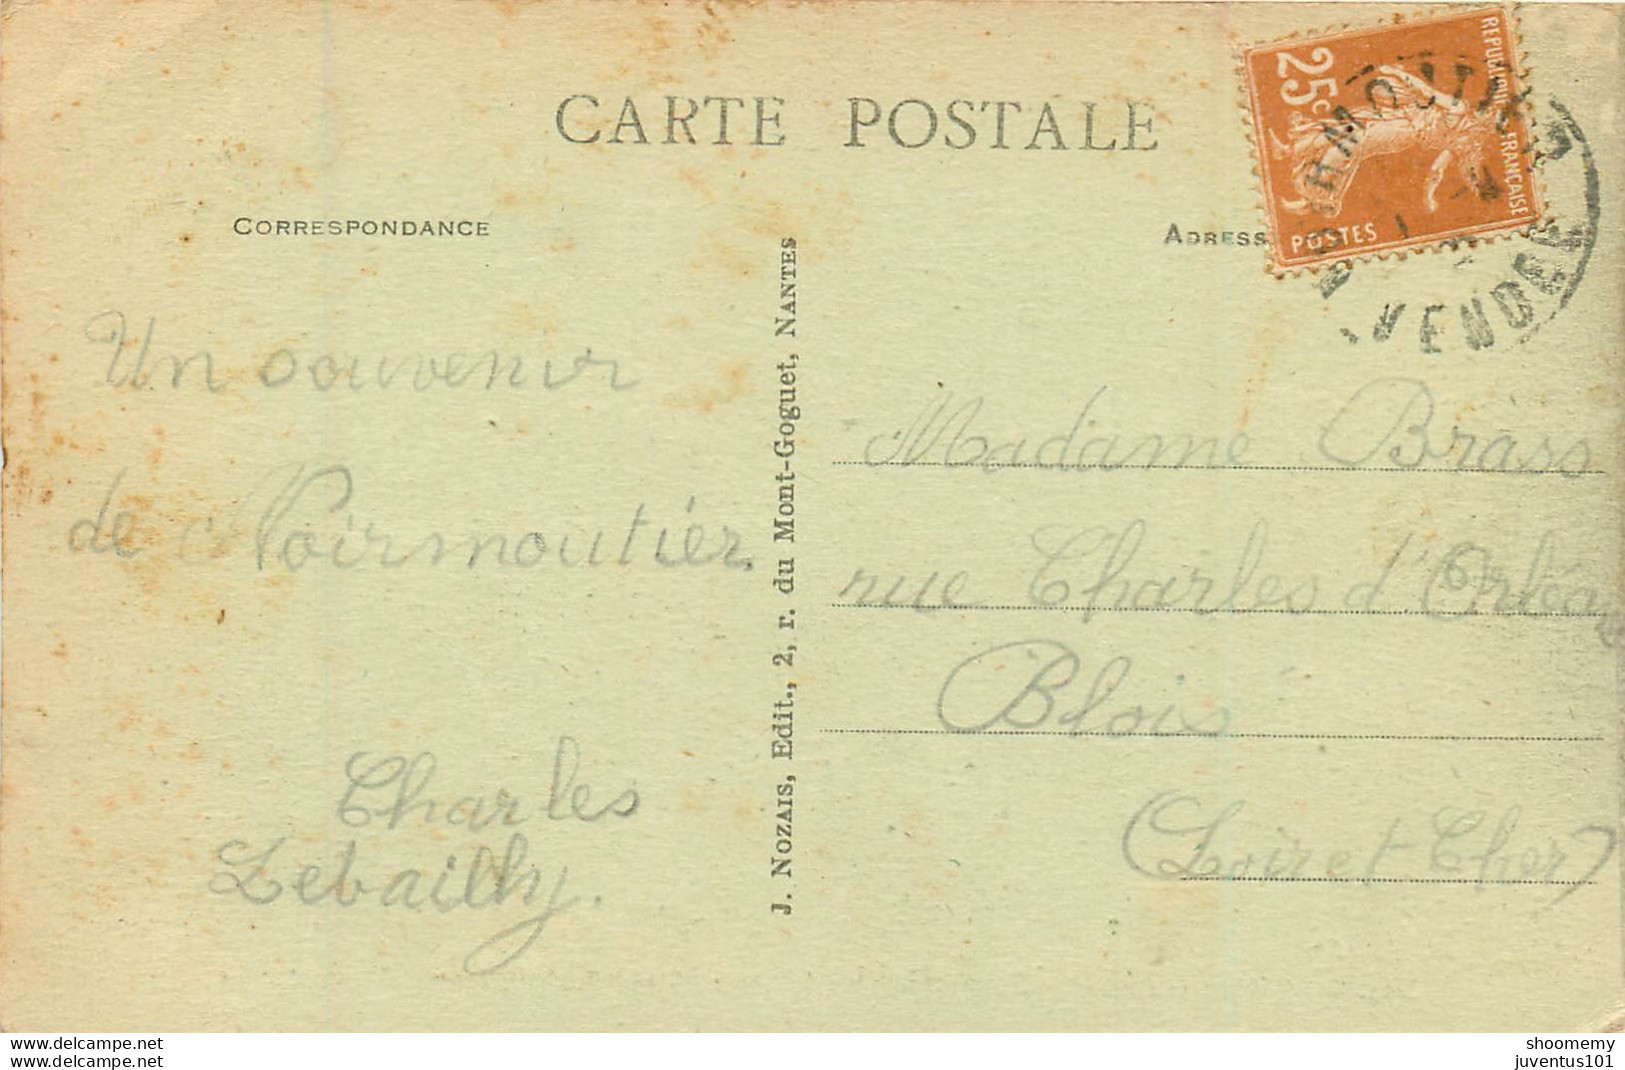 CARTE POSTALE
CORRESPONDANCE
ADRESS
REPUBLIQUE FRANÇAISE
25c
POSTES
NOIRMOUTIER
VENDEE
Un souvenir
de Noirmoutier.
Charles
Lebailly.
J. NOZAIS, Edit., 2, r. du Mont-Goguet, NANTES
Madame Brass
rue Charles d'Orléa
Blois
(Loir et Cher)
www.delcampe.net
www.delcampe.net
shoomemy
juventus101